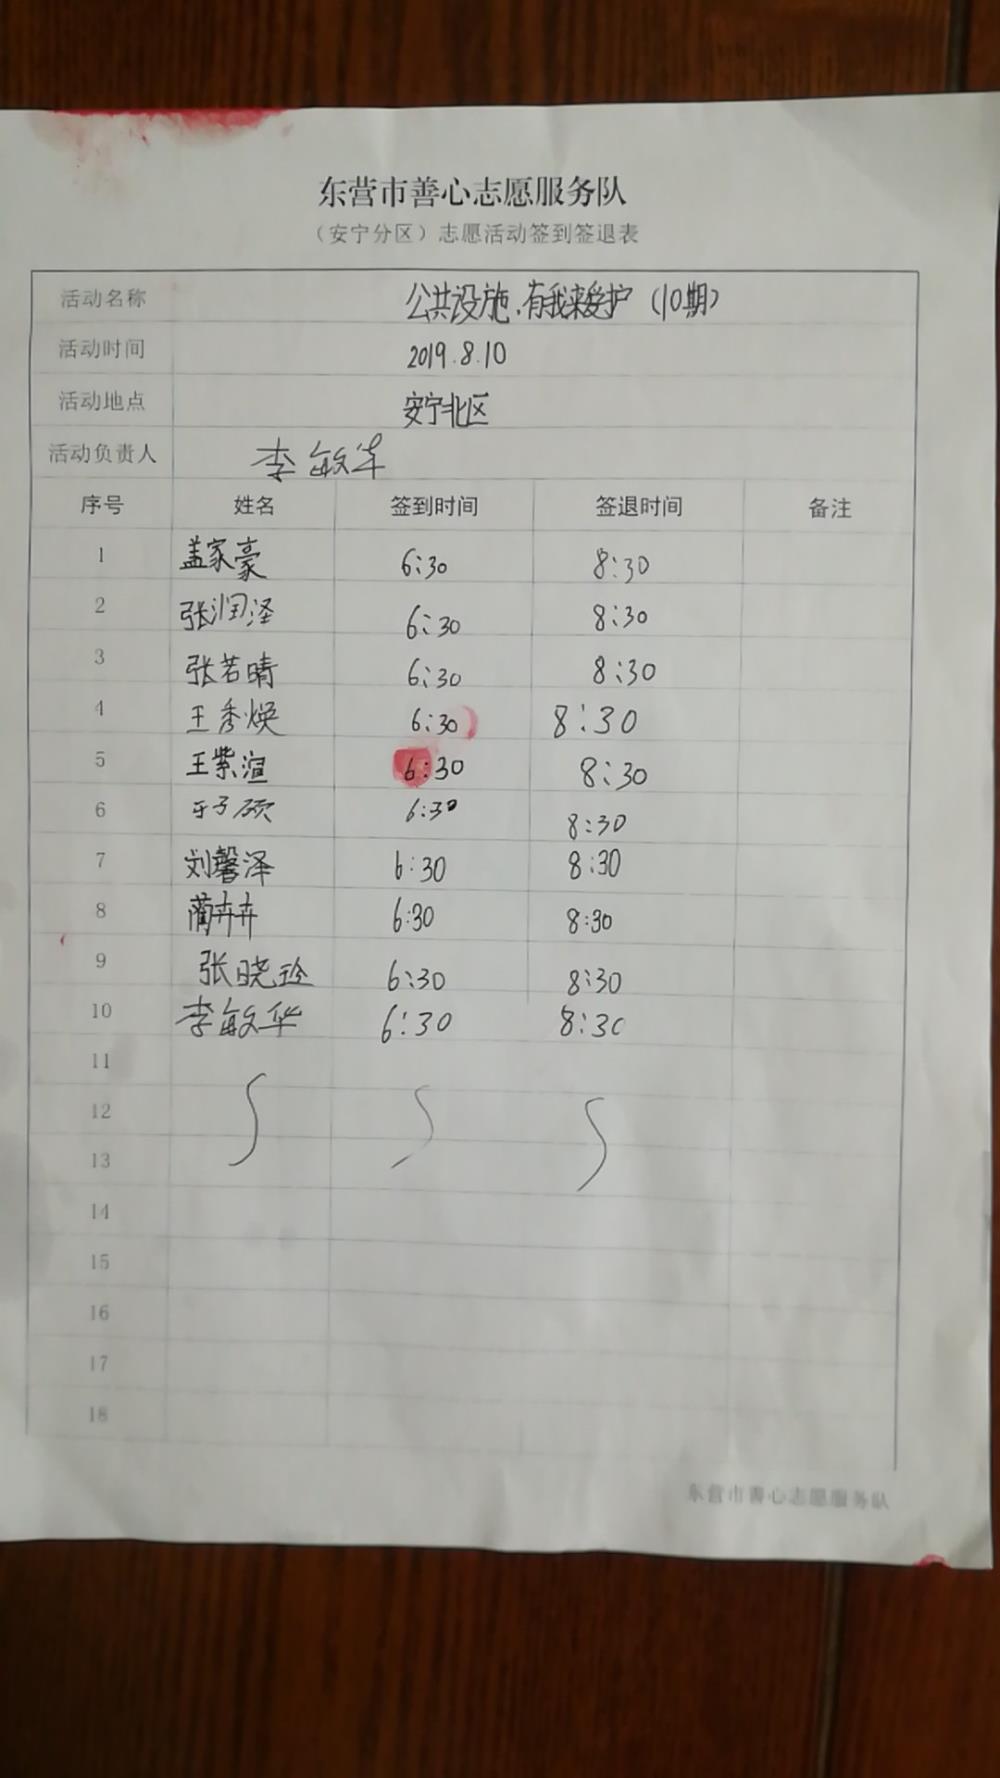 东营市善心志愿服务队
（安宁分区）志愿活动签到签退表
活动名称 公共设施、有我来爱护（10期）
活动时间 2019.8.10
活动地点 安宁北区
活动负责人 李敏华
序号 姓名 签到时间 签退时间 备注
1 盖家豪 6:30 8:30
2 张润泽 6:30 8:30
3 张若晴 6:30 8:30
4 王秀焕 6:30 8:30
5 王紫渲 6:30 8:30
6 6:30 8:30
7 刘馨泽 6:30 8:30
8 蔺卉卉 6:30 8:30
9 张晓玲 6:30 8:30
10 李敏华 6:30 8:30
11
12
13
14
15
16
17
18
东营市善心志愿服务队